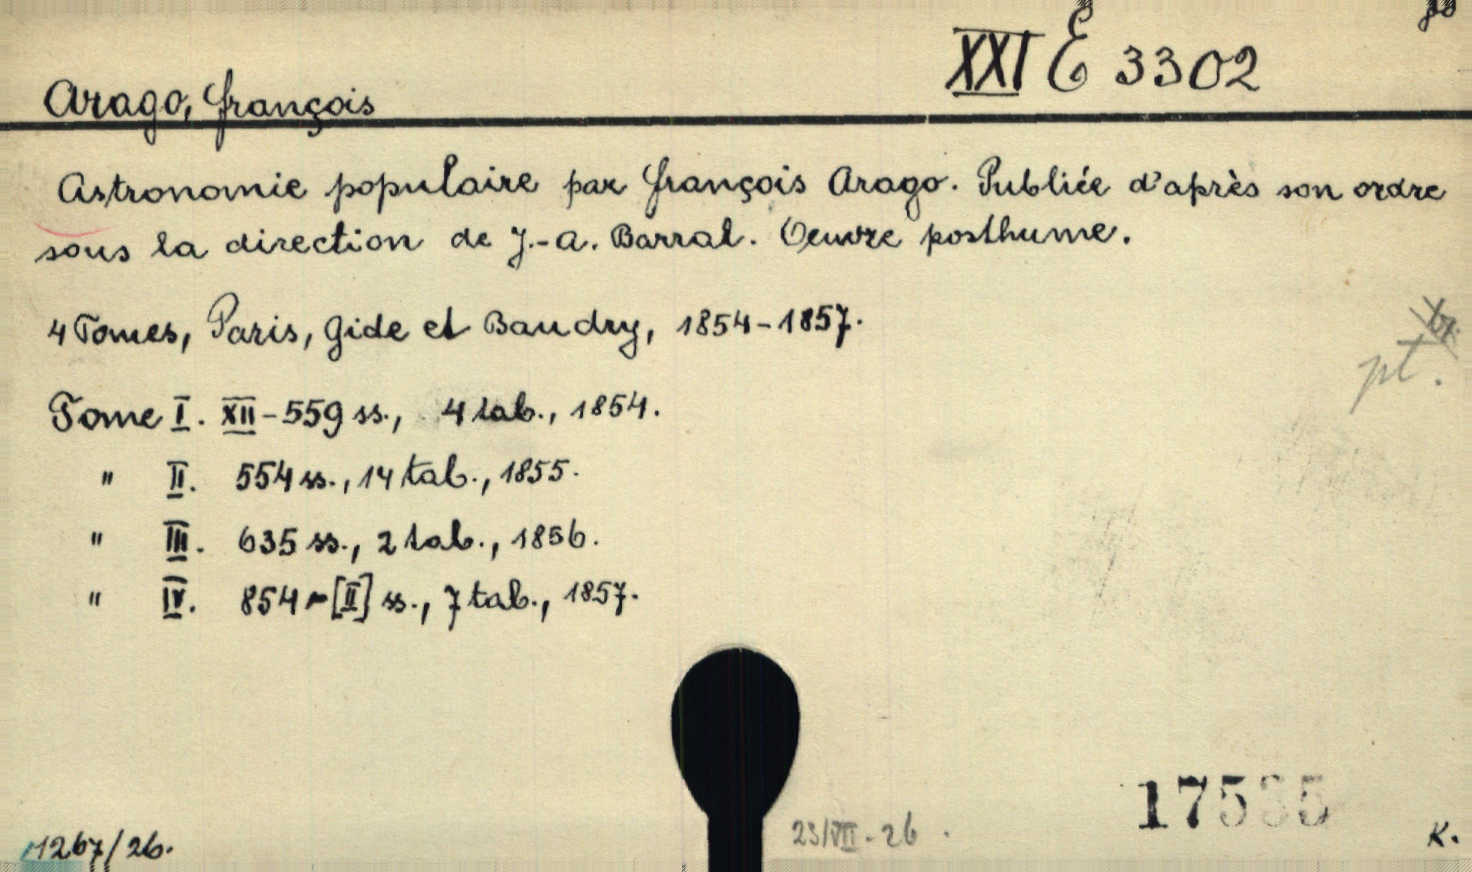 XXI E 3302
Arago, François
Astronomie populaire par François Arago. Publiée d'après son ordre
sous la direction de J.-A. Barral. Oeuvre posthume.
4 Tomes, Paris, Gide et Baudry, 1854-1857.
pt.
Tome I. XII-559 ss., 4 tab., 1854.
" II. 554 ss., 14 tab., 1855.
" III. 635 ss., 2 tab., 1856.
" IV. 854-[II] ss., 7 tab., 1857.
17535
1267/26.
23/VII-26.
K.